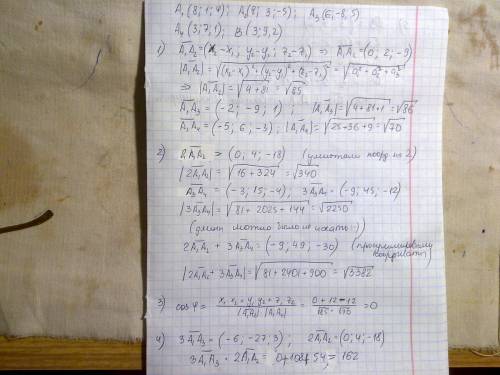 A₁ (8; 1; 4); A₂(8; 3; -5); A₃ (6; -8; 5)
A₄ (3; 7; 1); B (3; 9; 2)
1) A₁A₂ = (x₂ - x₁; y₂ - y₁; z₂ - z₁) ⇒ A₁A₂ = (0; 2; -9)
|A₁A₂| = √(x₂ - x₁)² + (y₂ - y₁)² + (z₂ - z₁)² = √a₁² + a₂² + a₃²
⇒ |A₁A₂| = √4 + 81 = √85
A₁A₃ = (-2; -9; 1); |A₁A₃| = √4+81+1 = √86
A₁A₄ = (-5; 6; -3); |A₁A₄| = √25+36+9 = √70
2) 2A₁A₂ = (0; 4; -18) (умножали коорд на 2)
|2A₁A₂| = √16 + 324 = √340
A₃A₄ = (-3; 15; -4); 3A₃A₄ = (-9; 45; -12)
|3A₃A₄| = √81 + 2025 + 144 = √2250
(длин можно было не искать :))
2A₁A₂ + 3A₃A₄ = (-9; 49; -30)
координаты)
|2A₁A₂ + 3A₃A₄| = √81 + 2401 + 900 = √3382
3) cos φ = x₁x₂ + y₁y₂ + z₁z₂ / |A₁A₂| · |A₁A₄| = 0 + 12 - 12 / √85 · √70 = 0
4) 3A₁A₃ = (-6; -27; 3); 2A₁A₂ = (0; 4; -18)
3A₁A₃ · 2A₁A₂ = 0+108+54 = 162